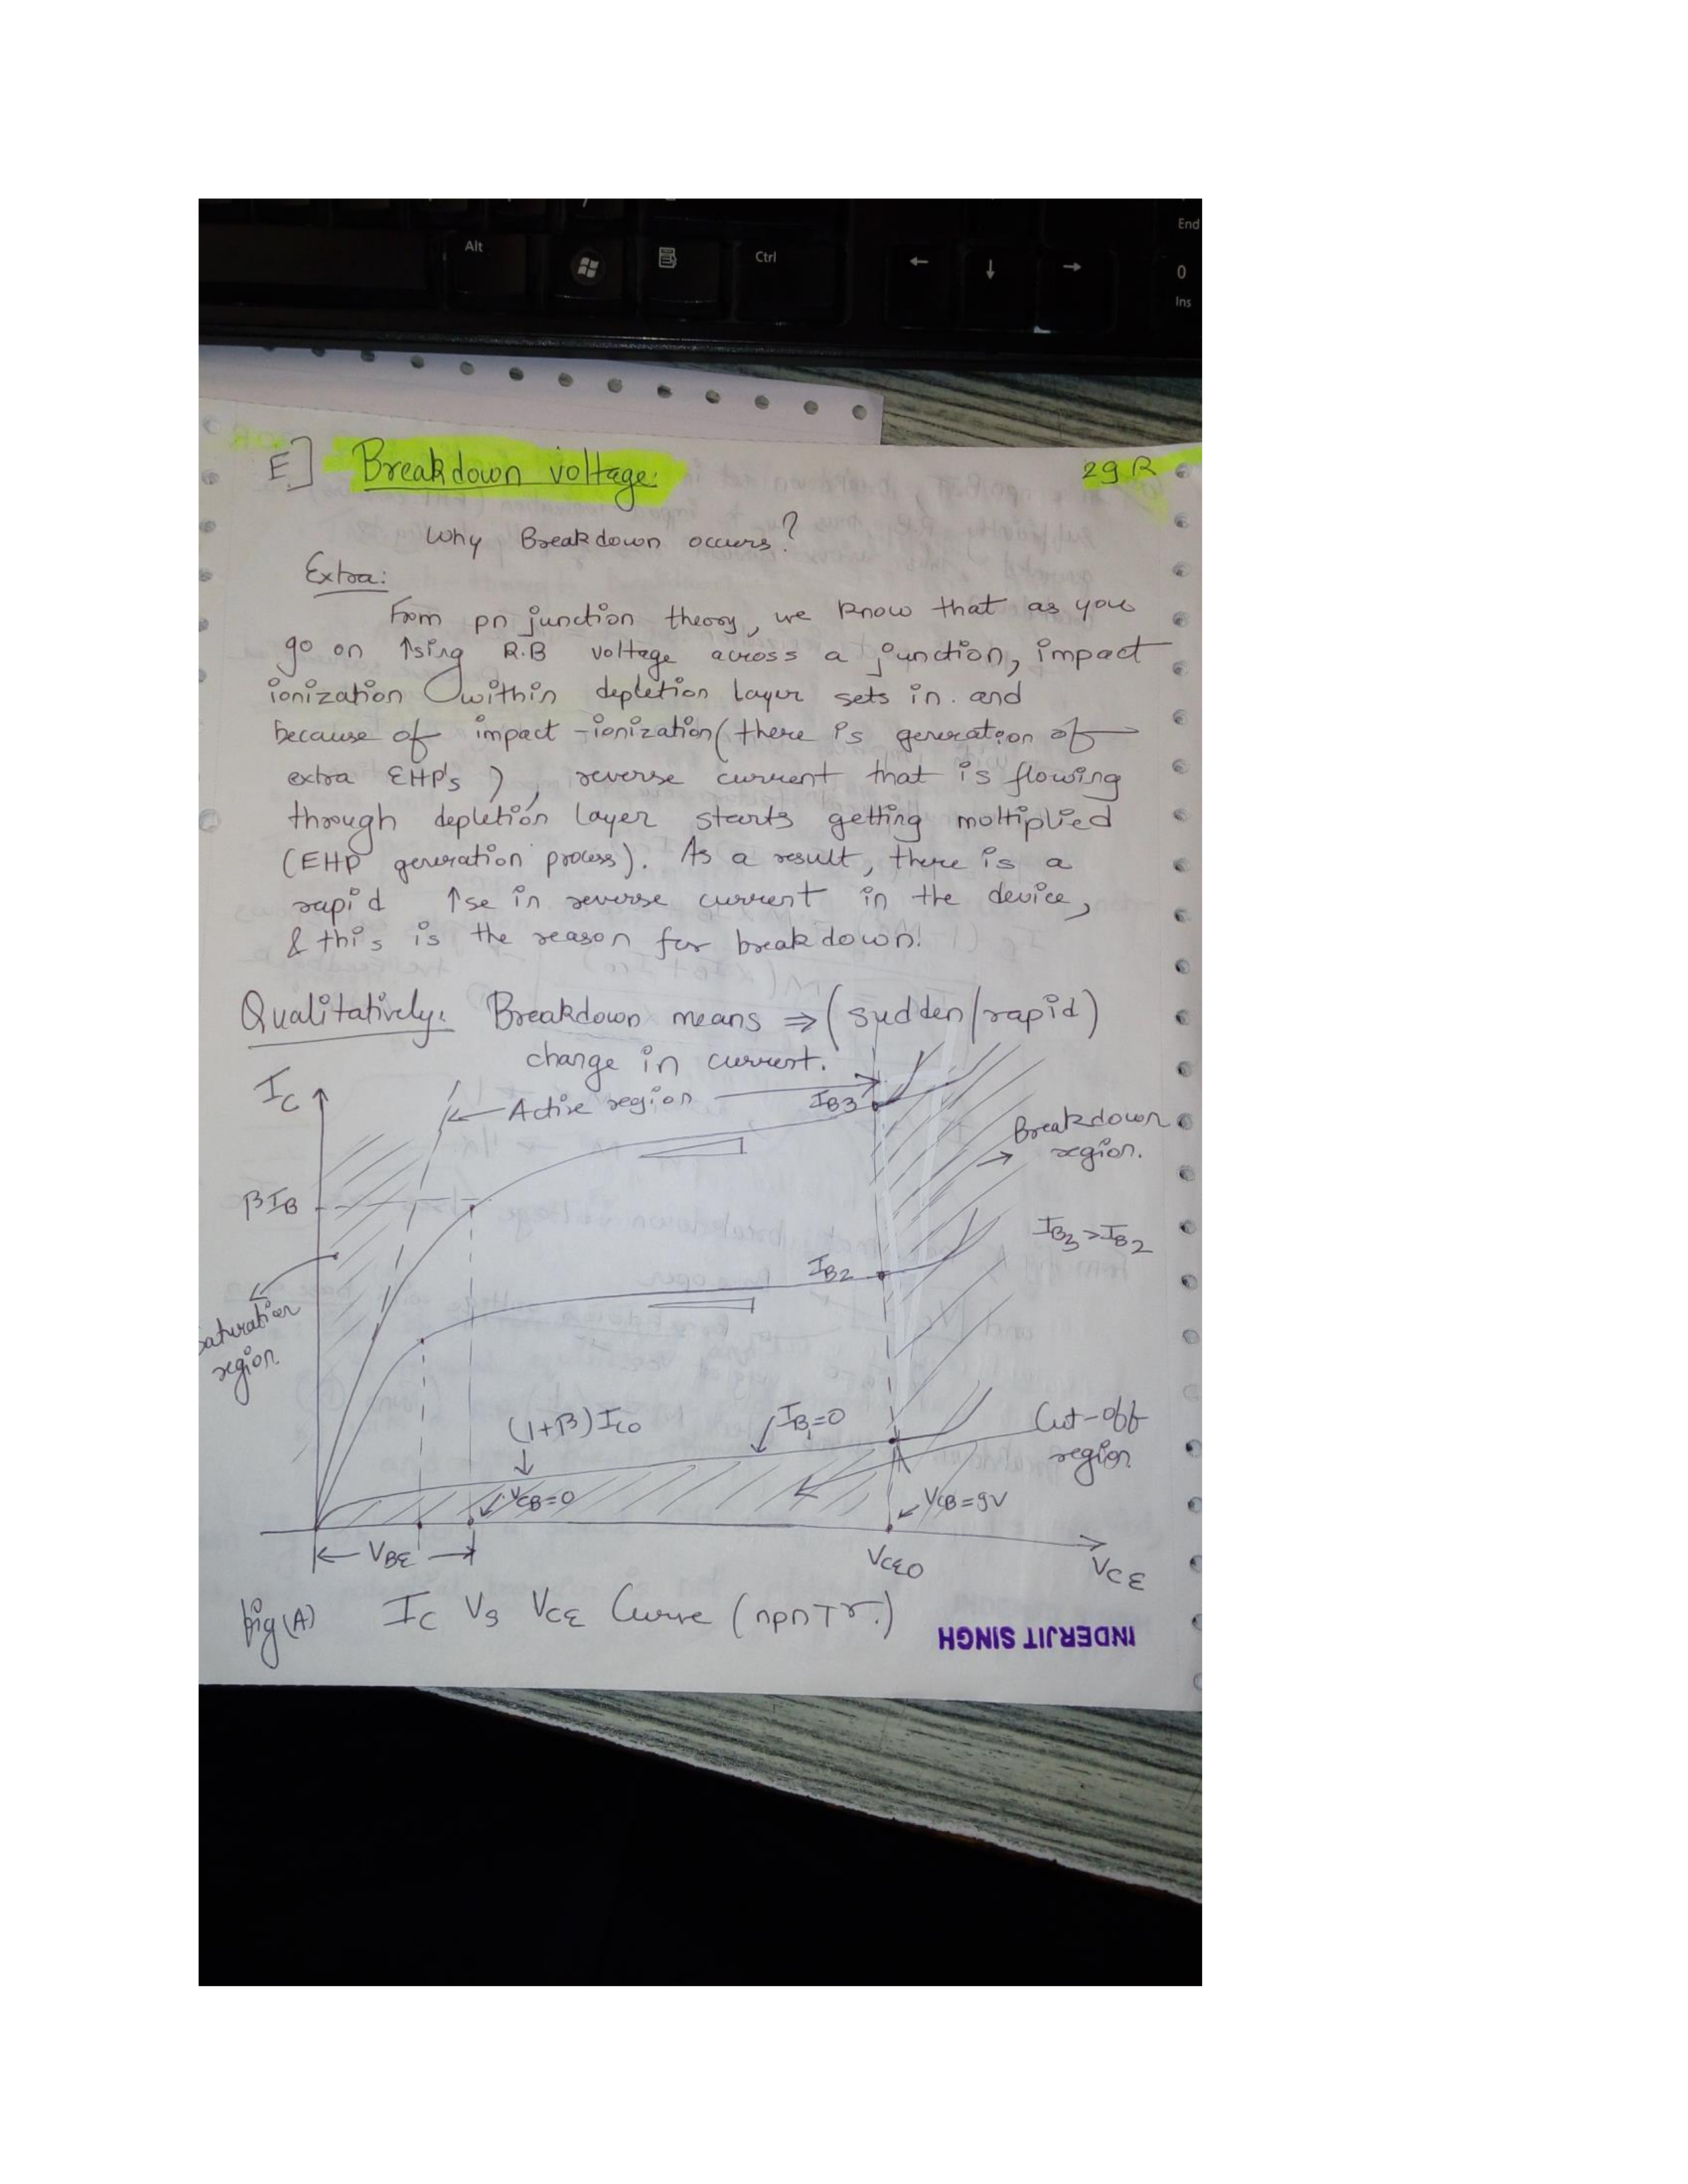 Alt
Ctrl
End
0
Ins
←
↓
→
E] Breakdown voltage:
29R
Why Breakdown occurs?
Extra:
From pn junction theory, we know that as you
go on ↑sing R.B voltage across a junction, impact
ionization within depletion layer sets in. and
because of impact-ionization (there is generation of
extra EHP's), reverse current that is flowing
through depletion layer starts getting moltiplied
(EHP generation process). As a result, there is a
rapid ↑se in reverse current in the device,
& this is the reason for breakdown!
Qualitatively: Breakdown means ⇒ (sudden/rapid)
change in current.
IC
← Active region →
IB3
Breakdown
region.
βIB
IB3 > IB2
IB2
Saturation
region.
(1+β)ICO
IB1=0
Cut-off
region
VCB=0
VCB=9V
← VBE →
VCEO
VCE
fig(A) IC Vs VCE Curve (npn Tr.)
INDERJIT SINGH